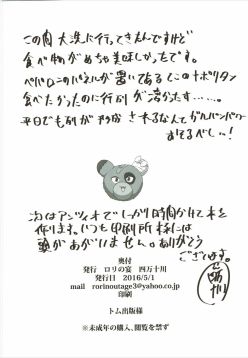 この間大洗に行ってきたんですけど
食べ物がめちゃ美味しかったです。
ペパロニのパネルが置いてある
ナポリタン
食べたかったのに行列が
平日でも列が
次はアンツィオでしっかり時間かけて本を
作ります。いつも印刷所様には
頭があがりません。ありがとう
ございます。
奥付
発行 ロリの宴 四万十川
発行日 2016/5/1
mail rorinoutage3@yahoo.co.jp
印刷
トム出版様
※未成年の購入、閲覧を禁ず